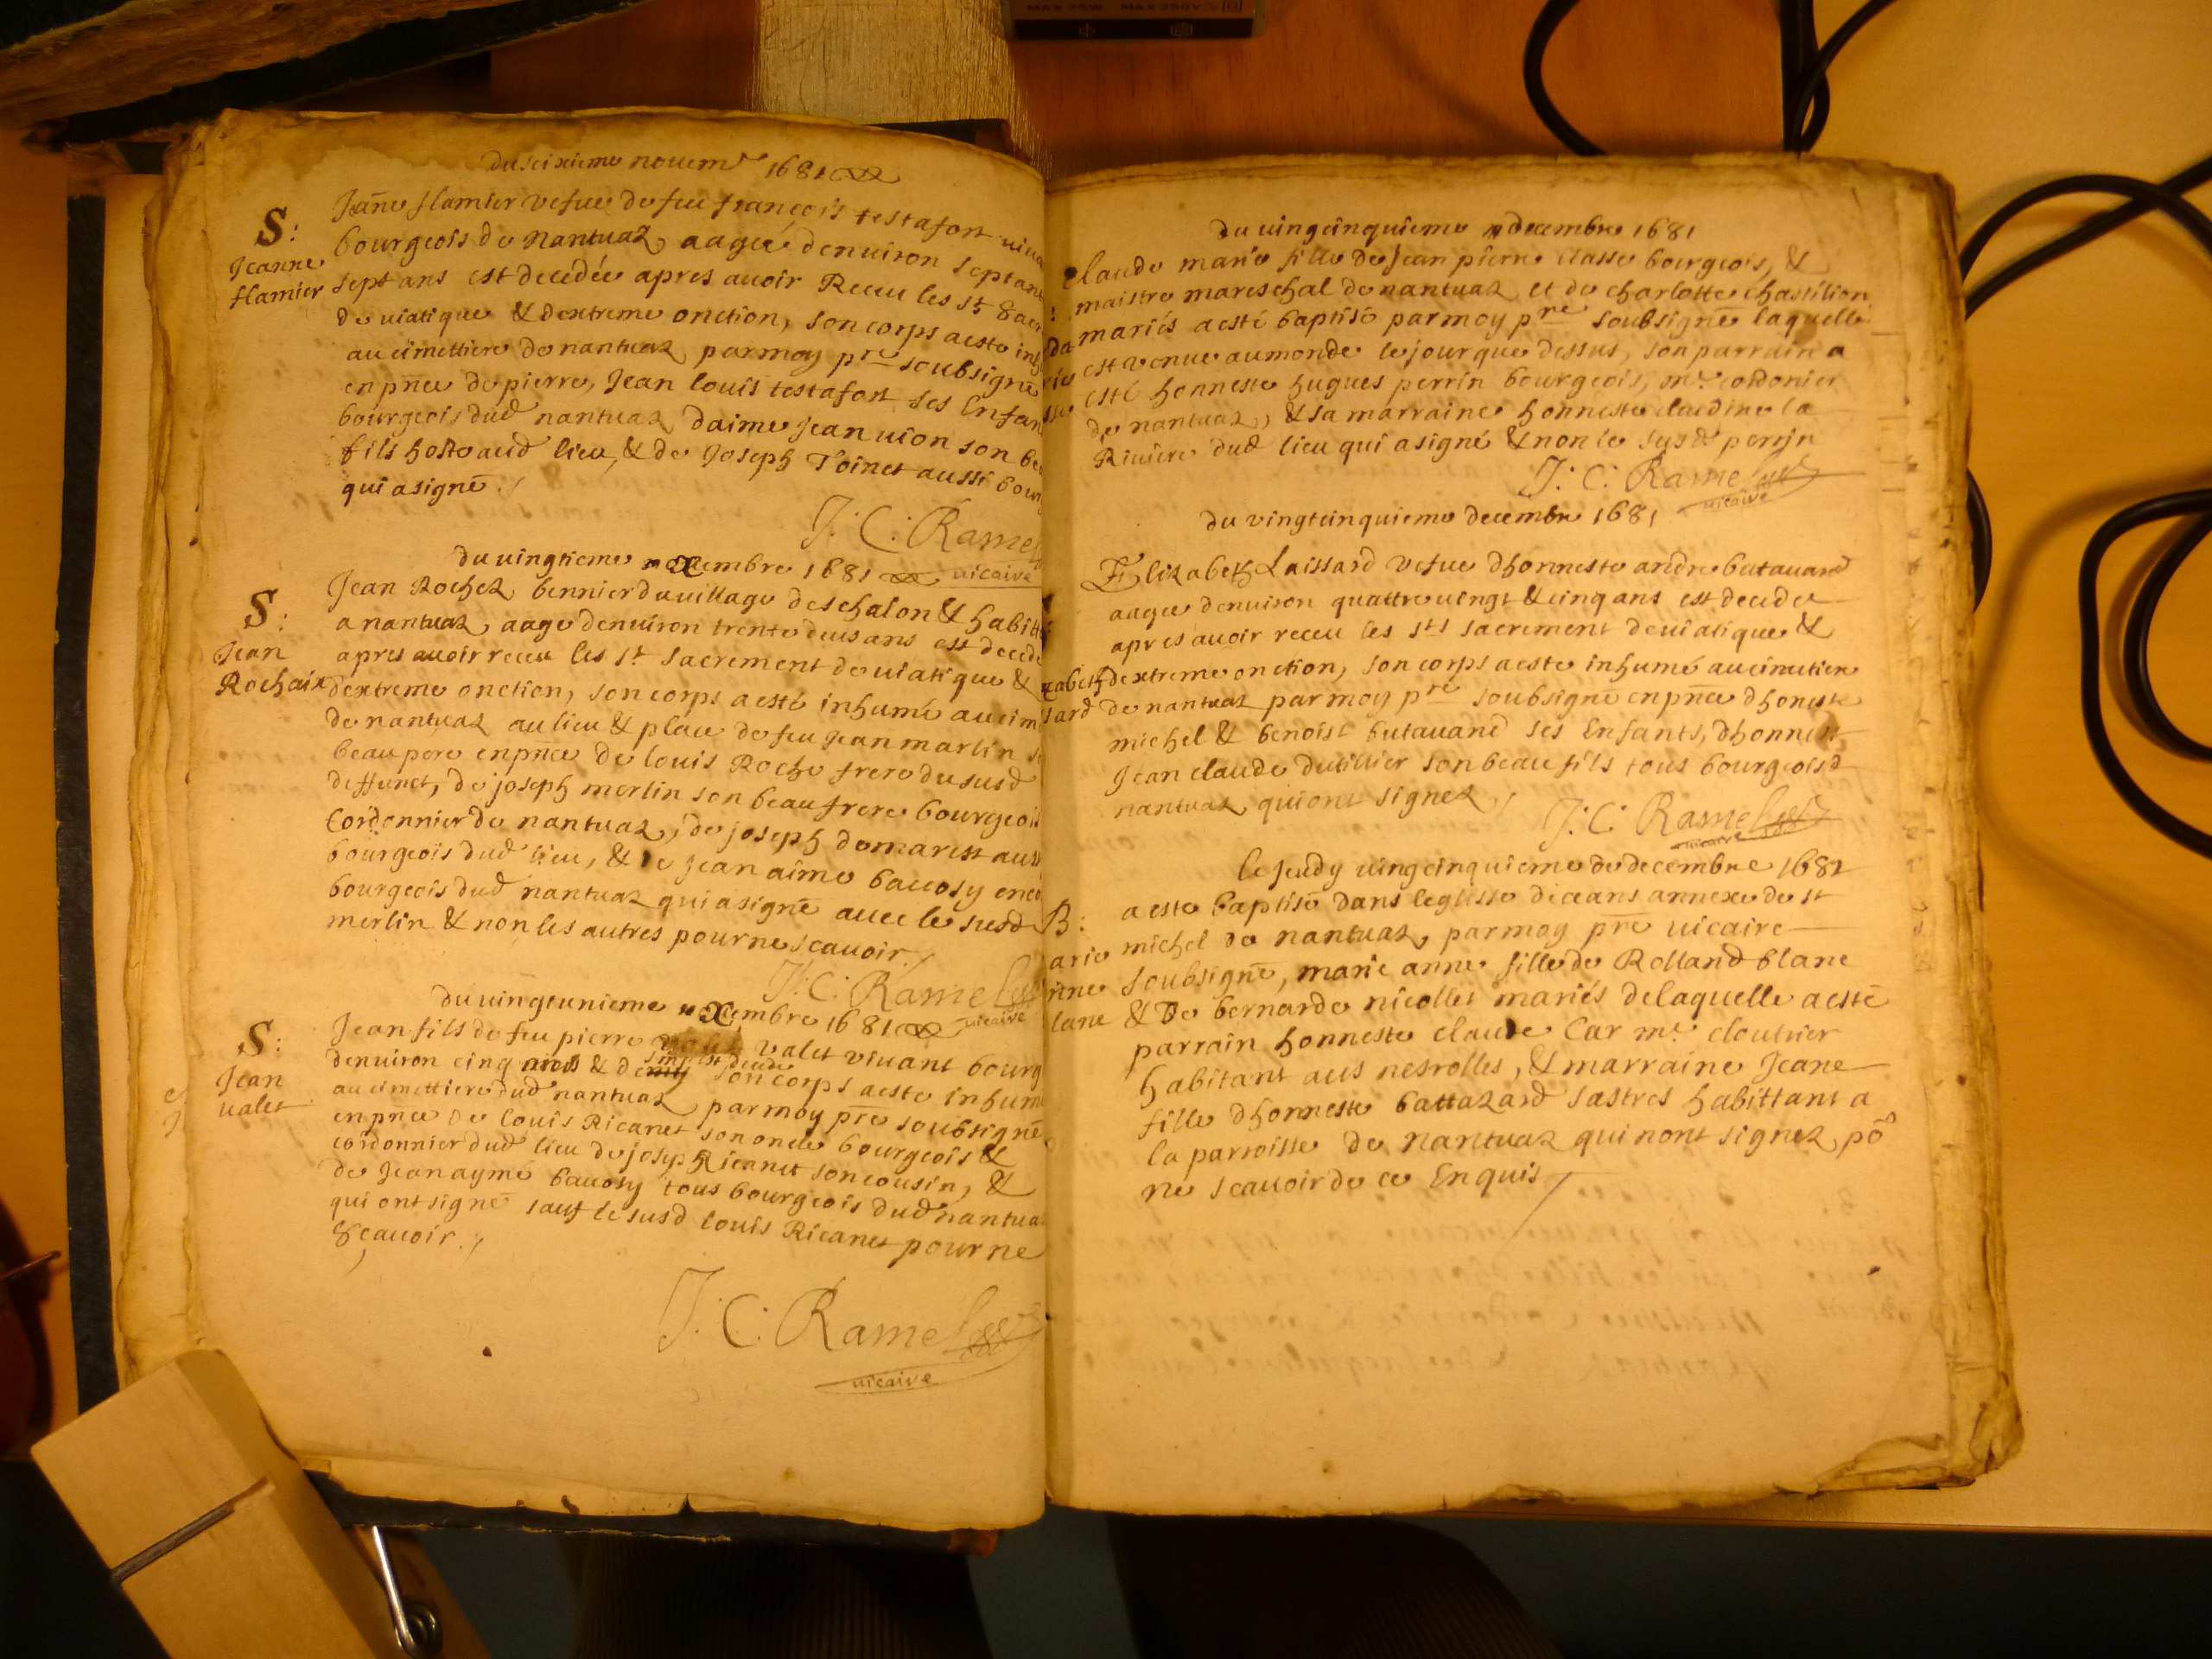 du seixieme novem^r 1681
S: Jeanne flamier
Jeãne flamier vefue de feu françois testafort viua
bourgeois de Nantuaz, aageé denuiron septant
sept ans est decédée apres auoir Receu les st^s Sacr
de uiatique & dextreme onction, son corps a esté inh
au cimettiere de nantuaz par moy p^re soubsigné
en pñce de pierre, Jean louis testafort ses Enfan
bourgeois dud nantuaz daime Jean uion son be
fils hoste aud lieu, & de Joseph Toinet aussi bour
qui a signé
J: C: Ramel
uicaire
du uingtieme xembre 1681
S: Jean Rochaix
Jean Rochez bennier du uillage deschalon & habitt
a nantuaz aage denuiron trente deus ans est decede
apres auoir receu les st^s sacrement de uiatique &
dextreme onction, son corps a esté inhumé au cim
de nantuaz au lieu & place de feu jean marlin s
beau pere en pñce de louis Roche frere du susd
deffunct, de joseph merlin son beau frere bourgeois
Cordonnier de nantuaz, de joseph demarest auss
bourgeois dud lieu, & de jean aime bacosy enco
bourgeois dud nantuaz qui a signé auec le susd
merlin & non les autres pour ne scauoir
J: C: Ramel
uicaire
du uingtunieme xembre 1681
S: Jean ualet
Jean fils de feu pierre valet viuant bourg
denuiron cinq mois & demis est decede son corps a esté inhum
au cimettiere dud nantuaz par moy pr̃e soubsigné
en pñce de louis Ricanet son oncle bourgeois &
cordonnier dud lieu de joseph Ricanet son cousin, &
de Jean aymé bacosy tous bourgeois dud nantua
qui ont signé sauf le susd louis Ricanet pour ne
Scauoir
J: C: Ramel
uicaire
du uingcinquieme decembre 1681
claude marie fille de Jean pierre classe bourgeois, &
maistre mareschal de nantuaz et de charlotte chastilion
mariés a esté baptisé par moy p^re soubsigné laquelle
est venue au monde le jour que dessus, son parrain a
esté honneste hugues perrin bourgeois, m^e cordonier
de nantuaz, & sa marraine honneste claudine la
Riuiere dud lieu qui a signé & non le susd perrin
J: C: Ramel
uicaire
du vingtcinquieme decembre 1681
Elizabeth Laissard vefue dhonneste andre butauand
aagee denuiron quattre uingt & cinq ans est decedee
apres auoir receu les st^s sacrement de uiatique &
dextreme onction, son corps a esté inhumé au cimetiere
de nantuaz par moy p^re soubsigné en pñce dhoneste
michel & benoist butauand ses Enfants, dhonneste
Jean claude dutillier son beau fils tous bourgeois d
nantuaz qui ont signez
J: C: Ramel
uicaire
le Jeudy uingcinquieme de decembre 1681
B:
a esté baptisé dans leglisse diceans annexe de st
michel de nantuaz, par moy pr̃e uicaire
soubsigné, marie anne fille de Rolland blanc
& de bernarde nicollet mariés de laquelle a esté
parrain honneste claude Car m^e cloutrier
habitant aus nesrolles, & marraine Jeane
fille dhonneste battazard sastres habittant a
la parroisse de nantuaz qui nont signez põ
ne scauoir de ce Enquis